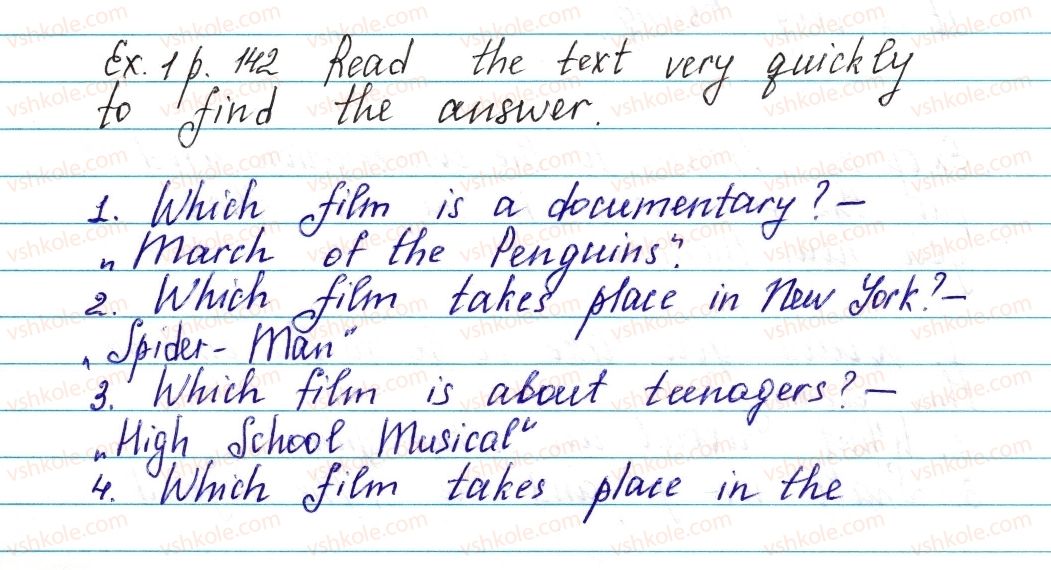 Ex. 1 p. 142 Read the text very quickly
to find the answer.
1. Which film is a documentary? –
„March of the Penguins".
2. Which film takes place in New York? –
„Spider-Man"
3. Which film is about teenagers? –
„High School Musical"
4. Which film takes place in the